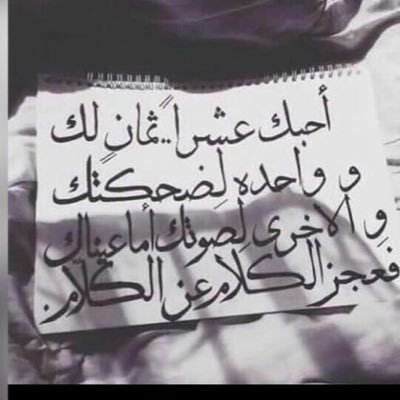 أحبك عشرا..ثمانٍ لك
و واحده لِضحكتك
و الاخرى لِصوتك أما عيناك
فعجز الكلام عن الكلام.